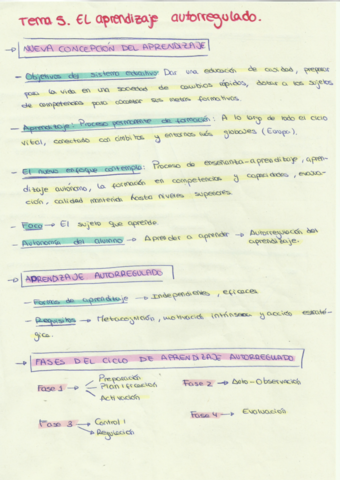 Tema 5. El aprendizaje autorregulado.
NUEVA CONCEPCIÓN DEL APRENDIZAJE
- Objetivos del sistema educativo: Dar una educación de calidad, preparar
para la vida en una sociedad de cambios rápidos, dotar a los sujetos
de competencias para conocer las metas formativas.
- Aprendizaje: Proceso permanente de formación: A lo largo de todo el ciclo
vital, conectado con ámbitos y entornos más globales (Europa).
- El nuevo enfoque contempla: Proceso de enseñanza-aprendizaje, apren-
dizaje autónomo, la formación en competencias y capacidades, evalua-
ción, calidad hasta niveles superiores.
- Foco → El sujeto que aprende.
- Autonomía del alumno → Aprender a aprender → Autorregulación del
aprendizaje.
APRENDIZAJE AUTORREGULADO
- Formas de aprendizaje → Independientes, eficaces.
- Requisitos → Metacognición, motivación intrínseca y acción estraté-
gica.
FASES DEL CICLO DE APRENDIZAJE AUTORREGULADO
Fase 1 → Preparación
Planificación
Activación
Fase 2 → Auto-Observación
Fase 3 → Control
Regulación
Fase 4 → Evaluación